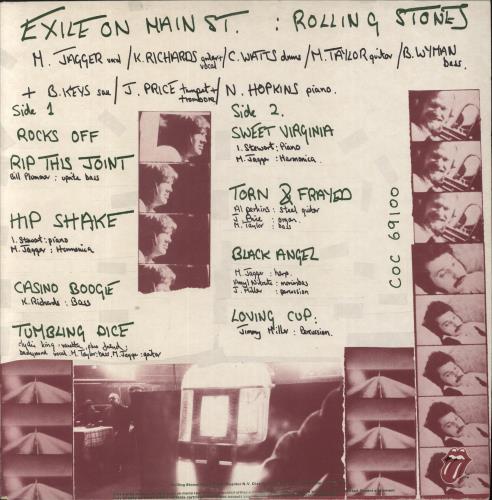 EXILE ON MAIN ST. : ROLLING STONES
M. JAGGER vocal / K. RICHARDS guitar + vocal / C. WATTS drums / M. TAYLOR guitar / B. WYMAN bass.
+ B. KEYS sax / J. PRICE trumpet + trombone / N. HOPKINS piano.
Side 1
ROCKS OFF
RIP THIS JOINT
Bill Plummer : uprite bass
HIP SHAKE
I. Stewart : piano
M. Jagger : Harmonica
CASINO BOOGIE
K. Richards : Bass
TUMBLING DICE
clydie king : vanetta, plus friend :
background vocal. M. Taylor : bass, M. Jagger : guitar
Side 2.
SWEET VIRGINIA
I. Stewart : Piano
M. Jagger : Harmonica.
TORN & FRAYED
Al perkins : steel guitar
J. Price : organ.
M. Taylor : bass
BLACK ANGEL
M. Jagger : harp.
Amyl Nitrate : marimbas
J. Miller : percussion
LOVING CUP :
Jimmy Miller : Percussion.
COC 69100